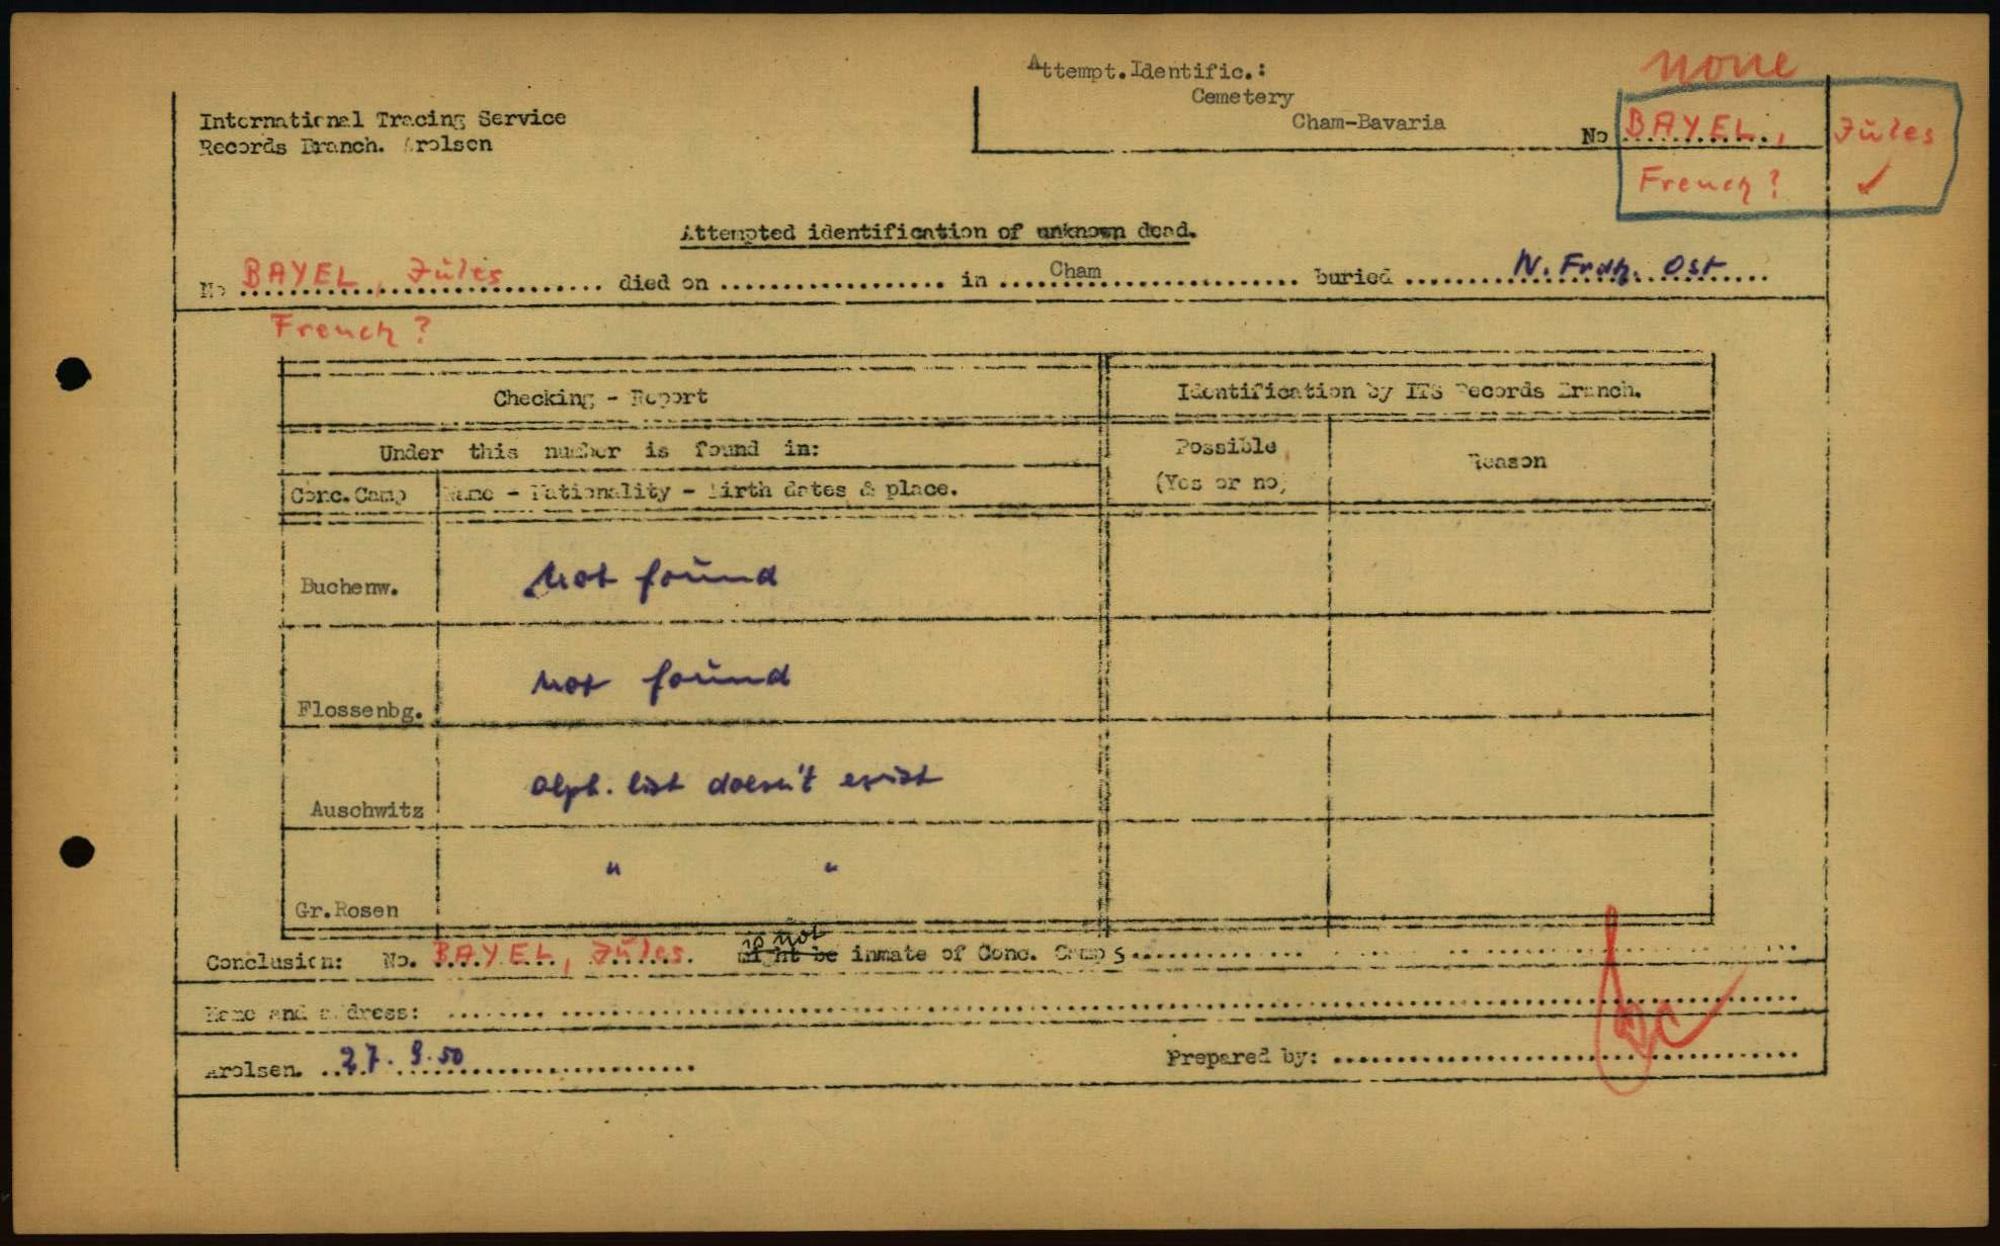 Attempt.Identific.:
Cemetery
Cham-Bavaria
none
International Tracing Service
Records Branch. Arolsen
No BAYEL, Jules
French? ✓
Attempted identification of unknown dead.
No BAYEL, Jules died on ........ in Cham ........ buried N. Frdh. Ost
French?
Checking - Report
Identification by ITS Records Branch.
Under this number is found in:
Possible
(Yes or no)
Reason
Conc.Camp Name - Nationality - Birth dates & place.
Buchenw. not found
Flossenbg. not found
Auschwitz alph. list doesn't exist
Gr.Rosen " "
is not
Conclusion: No. BAYEL, Jules. might be inmate of Conc. Camps
Name and address:
Arolsen. 27. 9. 50
Prepared by: